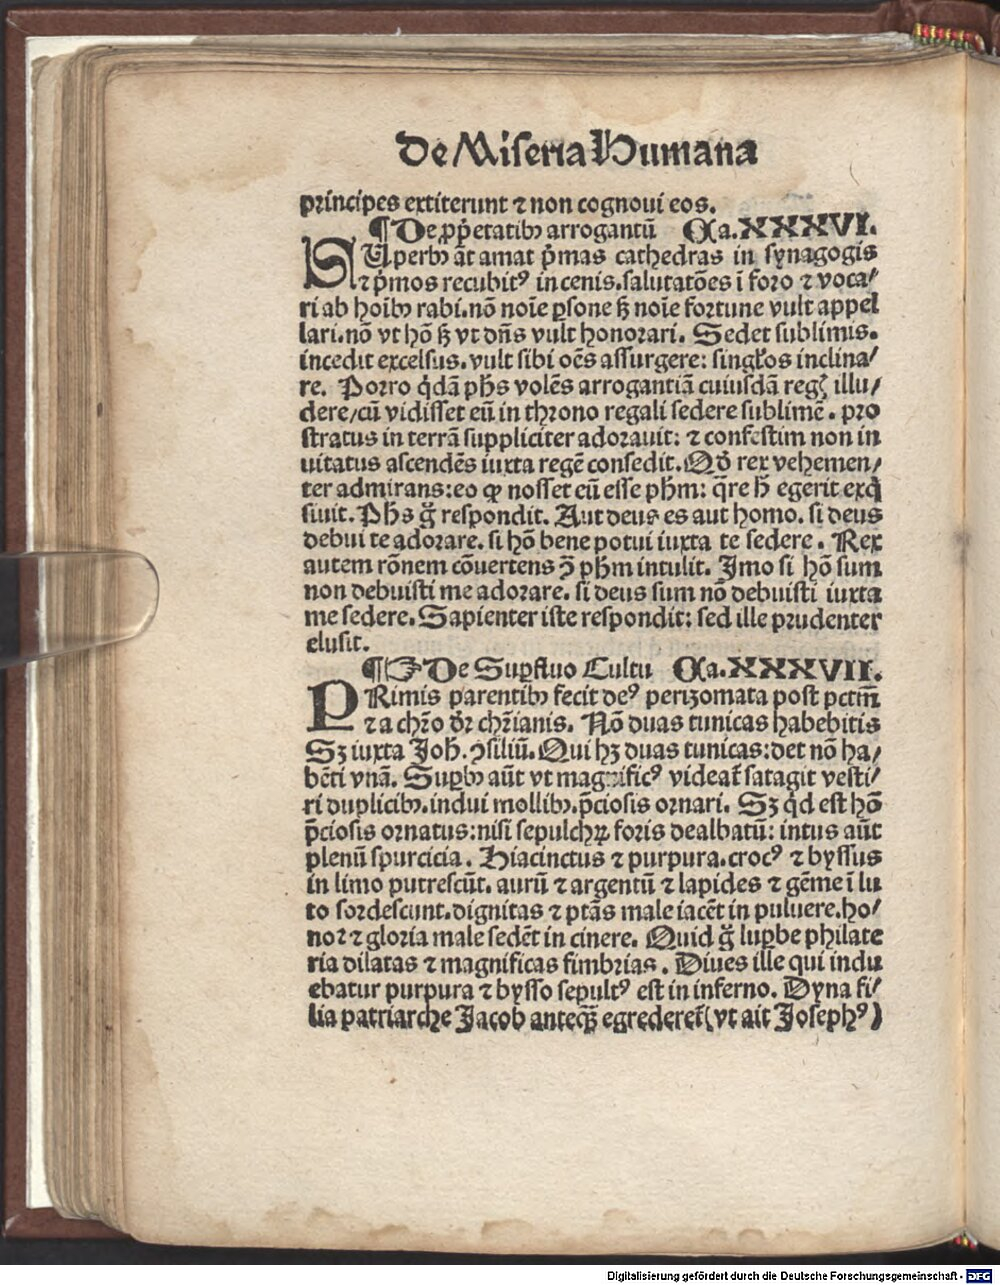 De Miseria Humana
principes extiterunt ⁊ non cognoui eos.
¶ De ꝓp̄etatibꝰ arrogantū Ca. XXXVI.
SUperbꝰ āt amat p̄mas cathedras in synagogis
⁊ p̄mos recubitꝰ in cenis. salutatōes ī foro ⁊ voca⸗
ri ab hoībꝰ rabi. nō noīe ꝑsone sꝫ noīe fortune vult appel
lari. nō vt hō sꝫ vt dn̄s vult honorari. Sedet sublimis.
incedit excelsus. vult sibi oēs assurgere: singl̓os inclina⸗
re. Porro q̇dā ph̄s volēs arrogantiā cuiusdā reg̣ illu⸗
dere/cū vidisset eū in throno regali sedere sublimē. pro
stratus in terrā suppliciter adorauit: ⁊ confestim non in
uitatus ascendēs iuxta regē consedit. Qḋ rex vehemen⸗
ter admirans: eo ꝙ nosset eū esse ph̄m: q̄re h̄ egerit exq̇
siuit. Ph̄s g̊ respondit. Aut deus es aut homo. si deus
debui te adorare. si hō bene potui iuxta te sedere. Rex
autem rōnem cōuertens ꝯ̄ ph̄m intulit. Imo si hō sum
non debuisti me adorare. si deus sum nō debuisti iuxta
me sedere. Sapienter iste respondit: sed ille prudenter
elusit.
¶☞ De Suꝑfluo Cultu Ca. XXXVII.
PRimis parentibꝰ fecit deꝰ perizomata post pctm̄
⁊ a chr̄o dr̄ chr̄ianis. Nō duas tunicas habebitis
Sꝫ iuxta Joh̄. ꝯsiliū. Qui hꝫ duas tunicas: det nō ha⸗
bēti vnā. Suꝑbꝰ aūt vt magnificꝰ videat̄ satagit vesti⸗
ri duplicibꝰ. indui mollibꝰ. p̄ciosis ornari. Sꝫ q̇d est hō
p̄ciosis ornatus: nisi sepulchꝝ foris dealbatū: intus aūt
plenū spurcicia. Hiacinctus ⁊ purpura. crocꝰ ⁊ byssus
in limo putrescūt. aurū ⁊ argentū ⁊ lapides ⁊ gēme ī lu
to sordescunt. dignitas ⁊ ptās male iacēt in puluere. ho⸗
nor ⁊ gloria male sedēt in cinere. Quid g̊ suꝑbe philate
ria dilatas ⁊ magnificas fimbrias. Diues ille qui indu
ebatur purpura ⁊ bysso sepultꝰ est in inferno. Dyna fi⸗
lia patriarche Jacob anteqꝫ̄ egrederet̄ (vt ait Josephꝰ)
Digitalisierung gefördert durch die Deutsche Forschungsgemeinschaft - DFG